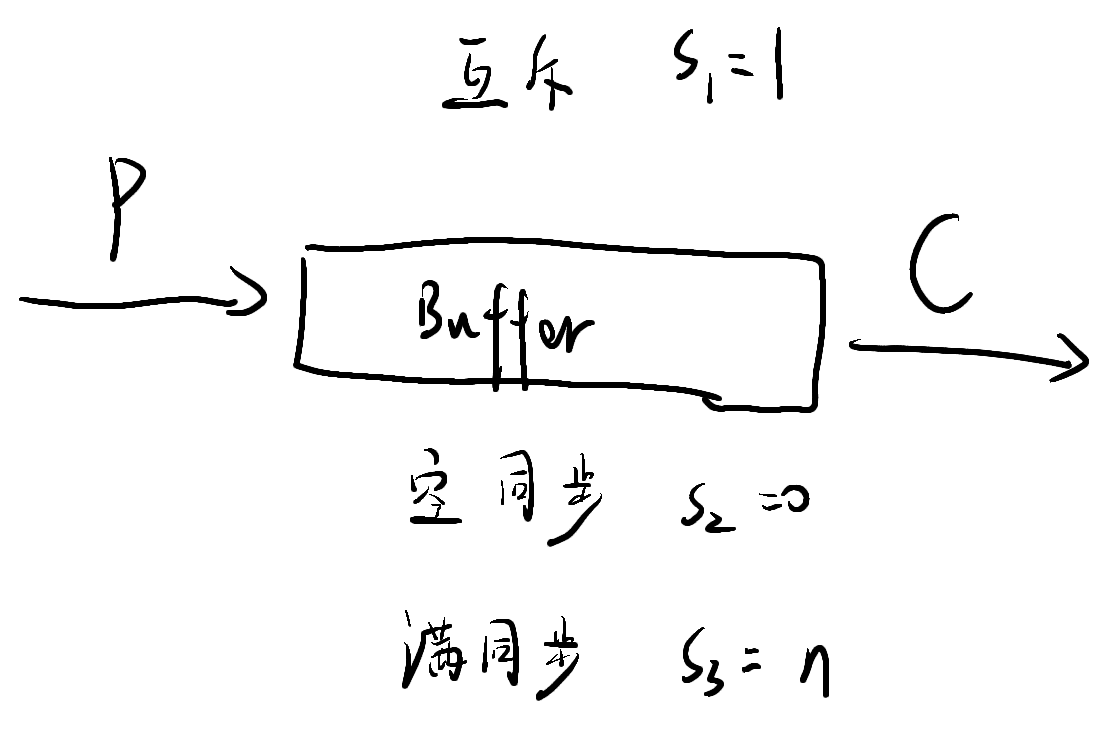 互斥 S₁=1
P
C
Buffer
空同步 S₂=0
满同步 S₃=n